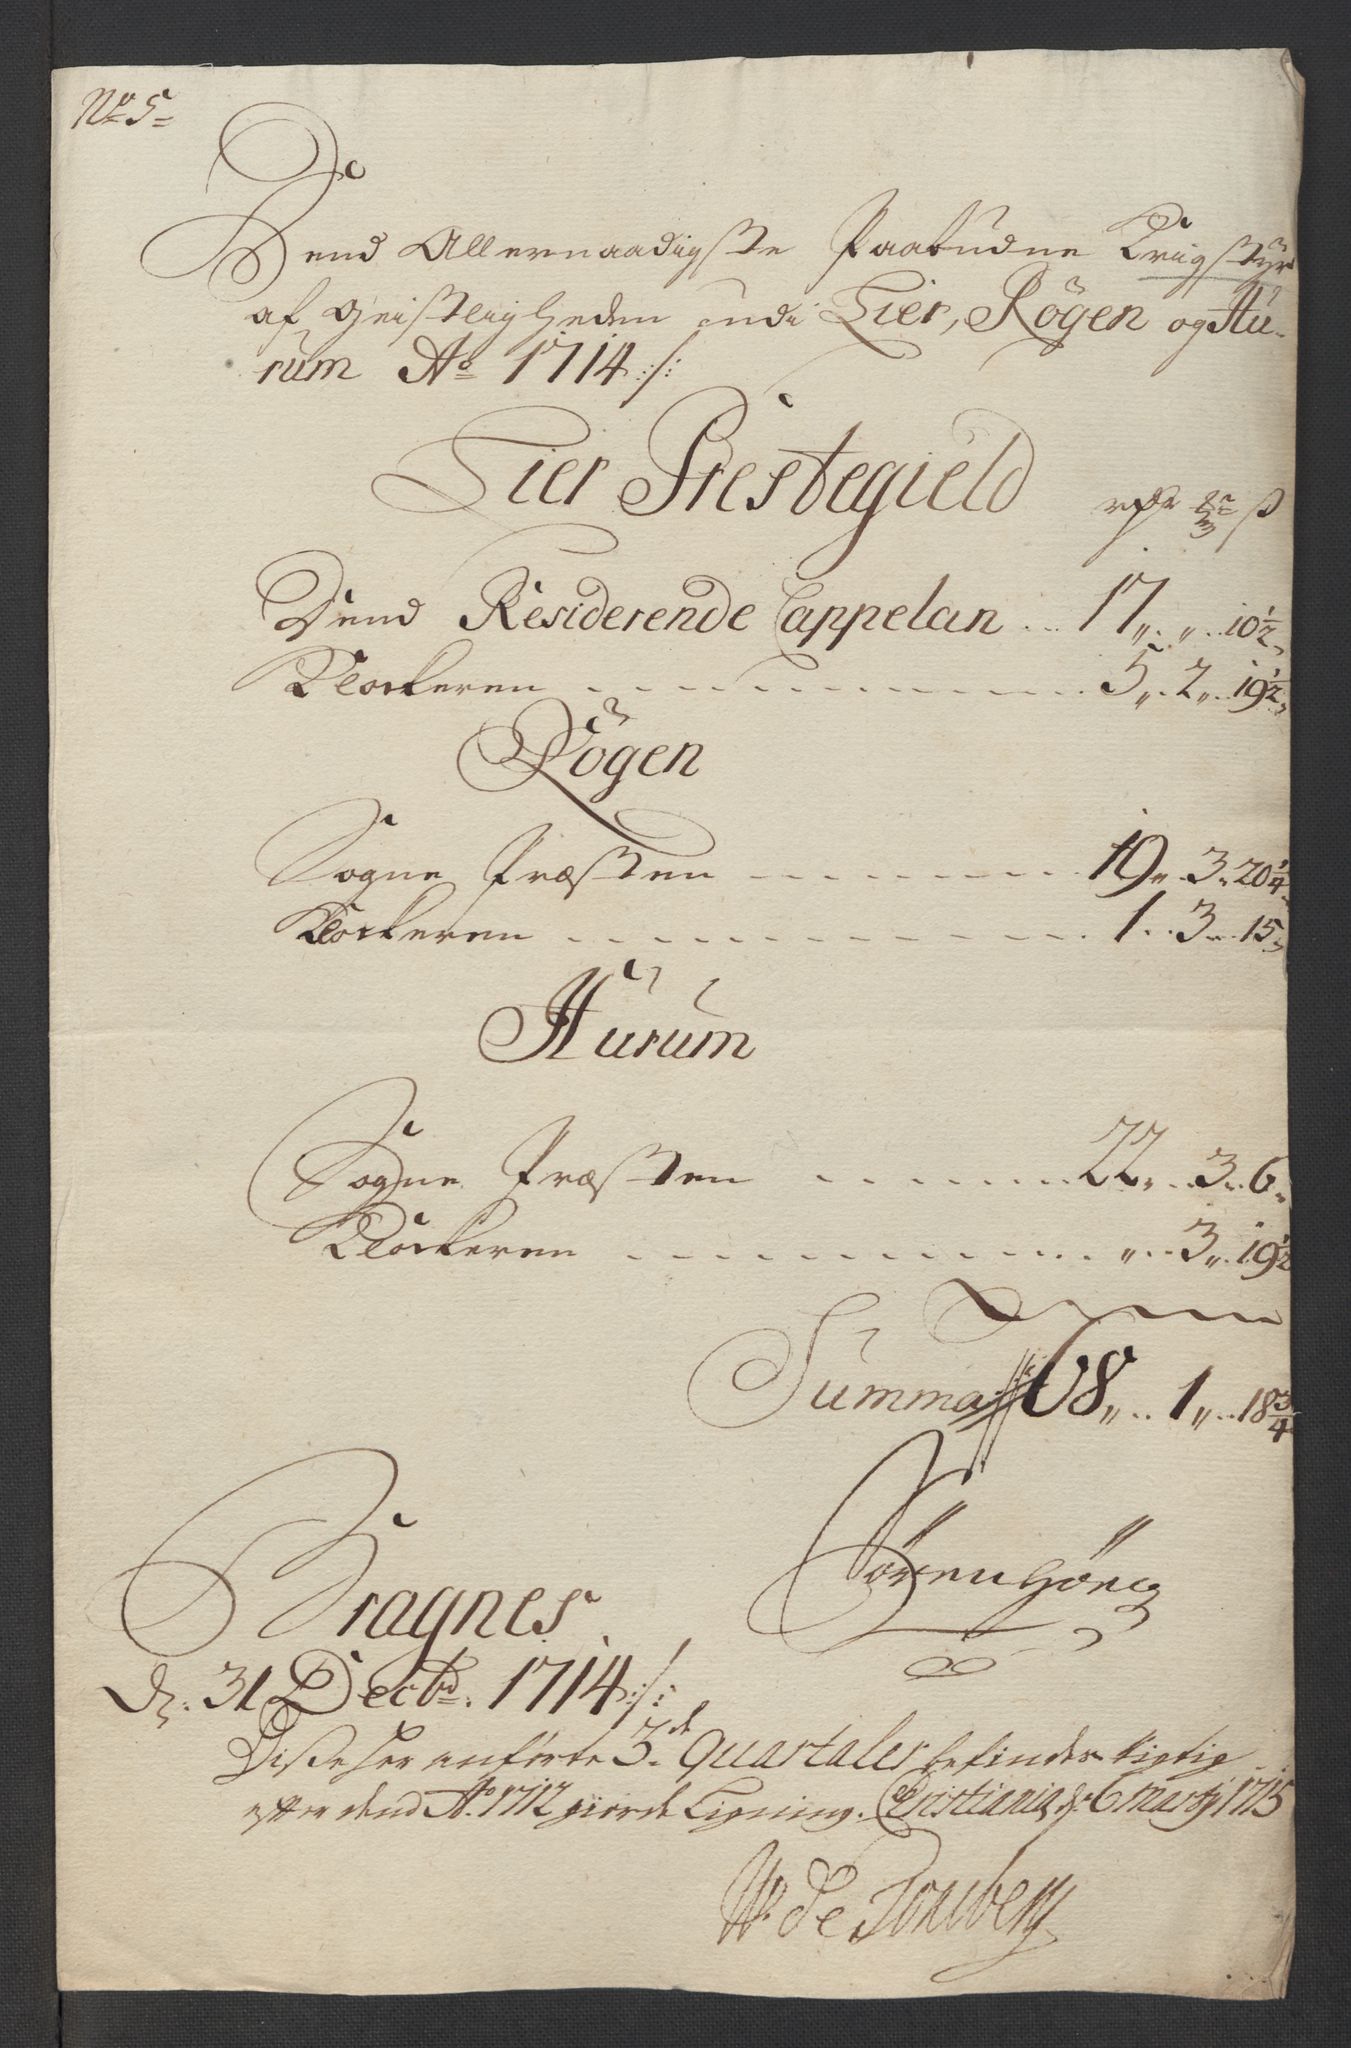 No 5
Dend Allernaadigste Paabudne Krigstyr
af Geistligheden udi Lier, Rögen og Hu-
rum Ao 1714 ./.
Lier Prestegield
rdr ß
Dend Residerende Cappelan .. 17 „ „ 10½
Klockeren 5 „ 2 „ 19½
Rögen
Sogne Præsten 19 „ 3 „ 20¼
Klockeren 1 .. 3 .. 15
Hurum
Sogne Præsten 22 .. 3 .. 6
Klockeren „ .. 3 „ 19½
Summa 68 „ 1 „ 18¾
Bragnes
Sören
d. 31 Decbr. 1714 ./.
Disse her anförte 3de Quartaler befindes rigtig
efter dend Ao 1712 giorde Ligning. Christiania d. 6 Martj 1715
W. de